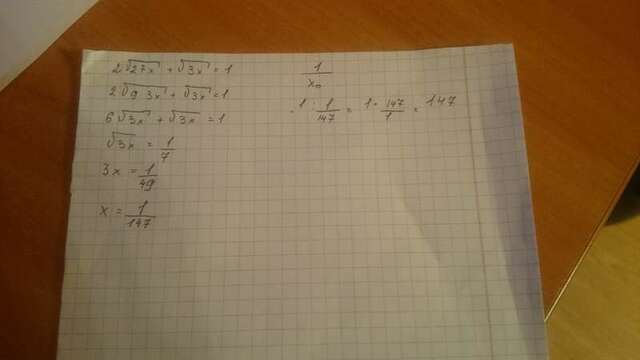 2√27x + √3x = 1
2√9 3x + √3x = 1
6√3x + √3x = 1
√3x = 1/7
3x = 1/49
x = 1/147
1/x₀
1 : 1/147 = 1 · 147/1 = 147